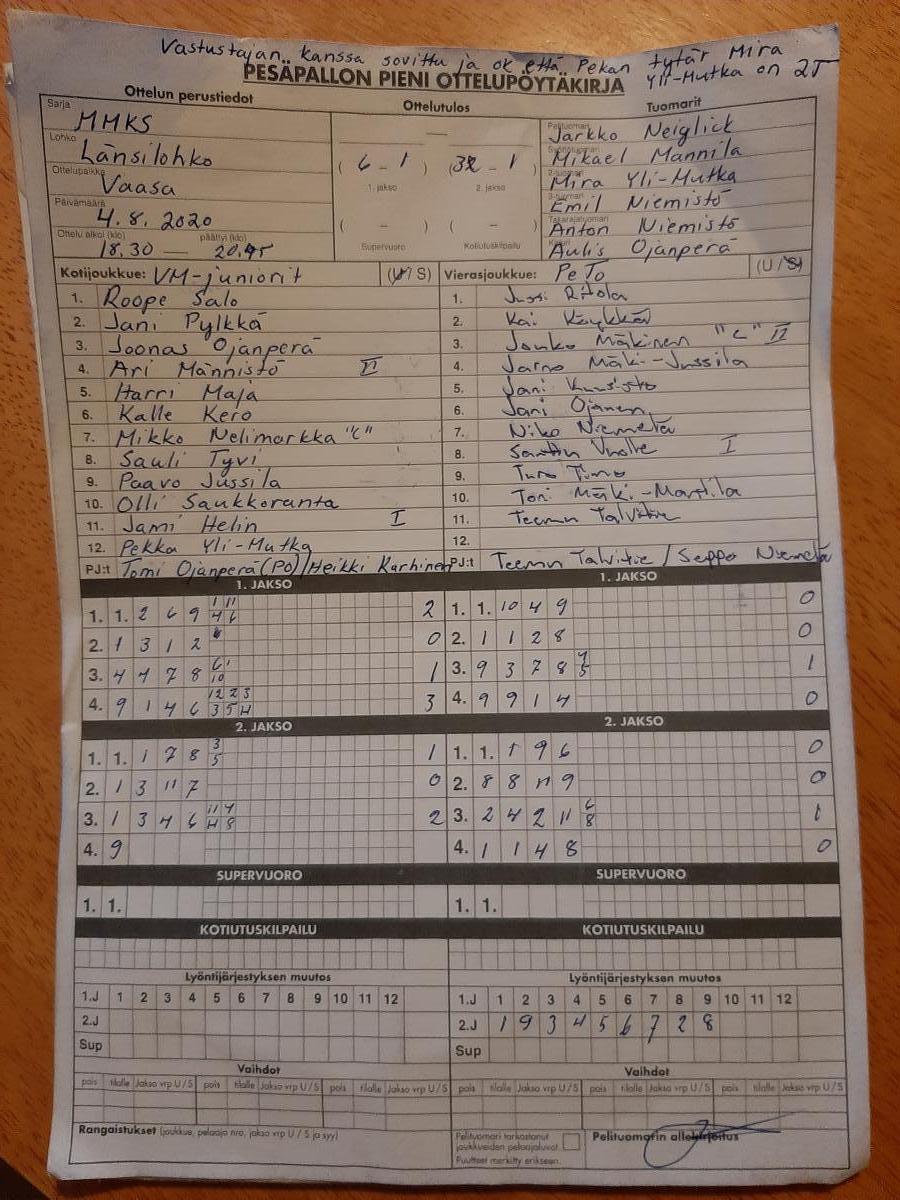 Vastustajan kanssa sovittu ja ok että Pekan tytär Mira
Yli-Mutka on 2T
PESÄPALLON PIENI OTTELUPÖYTÄKIRJA
Ottelun perustiedot Ottelutulos Tuomarit
Sarja MMKS
Lohko Länsilohko
Ottelupaikka Vaasa
Päivämäärä 4.8.2020
Ottelu alkoi (klo) päättyi (klo)
18.30 — 20.45
( 6 - 1 ) ( 3 - 1 )
1. jakso 2. jakso
( - ) ( - )
Supervuoro Kotiutuskilpailu
Pelituomari Jarkko Neiglick
Syöttötuomari Mikael Mannila
2-tuomari Mira Yli-Mutka
3-tuomari Emil Niemistö
Takarajatuomari Anton Niemistö
Kirjuri Aulis Ojanperä
Kotijoukkue: VM-juniorit (U/S)
1. Roope Salo
2. Jani Pylkkä
3. Joonas Ojanperä
4. Ari Männistö II
5. Harri Maja
6. Kalle Kero
7. Mikko Nelimarkka "C"
8. Sauli Tyvi
9. Paavo Jussila
10. Olli Saukkoranta
11. Jami Helin I
12. Pekka Yli-Mutka
PJ:t Tomi Ojanperä (PO)/Heikki Karhinen
Vierasjoukkue: PeTo (U/S)
1. Jussi Ritola
2. Kai Käykkä
3. Jouko Mäkinen "C" II
4. Jarno Mäki-Jussila
5. Jani Kuusisto
6. Jani Ojanen
7. Niko Niemelä
8. Santtu Vuolle I
9. Turo Timo
10. Toni Mäki-Mantila
11. Teemu Talvitie
12.
PJ:t Teemu Talvitie / Seppo Niemelä
1. JAKSO
1. 1. 2 6 9 1 11 4 6 2
2. 1 3 1 2 0
3. 4 4 7 8 6 10 1
4. 9 1 4 6 12 2 3 3 5 4 3
1. JAKSO
1. 1. 10 4 9 0
2. 1 1 2 8 0
3. 9 3 7 8 4 5 1
4. 9 9 1 4 0
2. JAKSO
1. 1. 1 7 8 3 5 1
2. 1 3 11 7 0
3. 1 3 4 6 11 4 4 8 2
4. 9
2. JAKSO
1. 1. 1 9 6 0
2. 8 8 11 9 0
3. 2 4 2 11 6 8 1
4. 1 1 4 8 0
SUPERVUORO SUPERVUORO
1. 1. 1. 1.
KOTIUTUSKILPAILU KOTIUTUSKILPAILU
Lyöntijärjestyksen muutos Lyöntijärjestyksen muutos
1.J 1 2 3 4 5 6 7 8 9 10 11 12 1.J 1 2 3 4 5 6 7 8 9 10 11 12
2.J 2.J 1 9 3 4 5 6 7 2 8
Sup Sup
Vaihdot Vaihdot
pois tilalle Jakso vrp U / S pois tilalle Jakso vrp U / S pois tilalle Jakso vrp U / S pois tilalle Jakso vrp U / S pois tilalle Jakso vrp U / S pois tilalle Jakso vrp U / S
Rangaistukset (joukkue, pelaaja nro, jakso vrp U / S ja syy)
Pelituomari tarkastanut
joukkueiden pelaajaluvat.
Puutteet merkitty erikseen.
Pelituomarin allekirjoitus